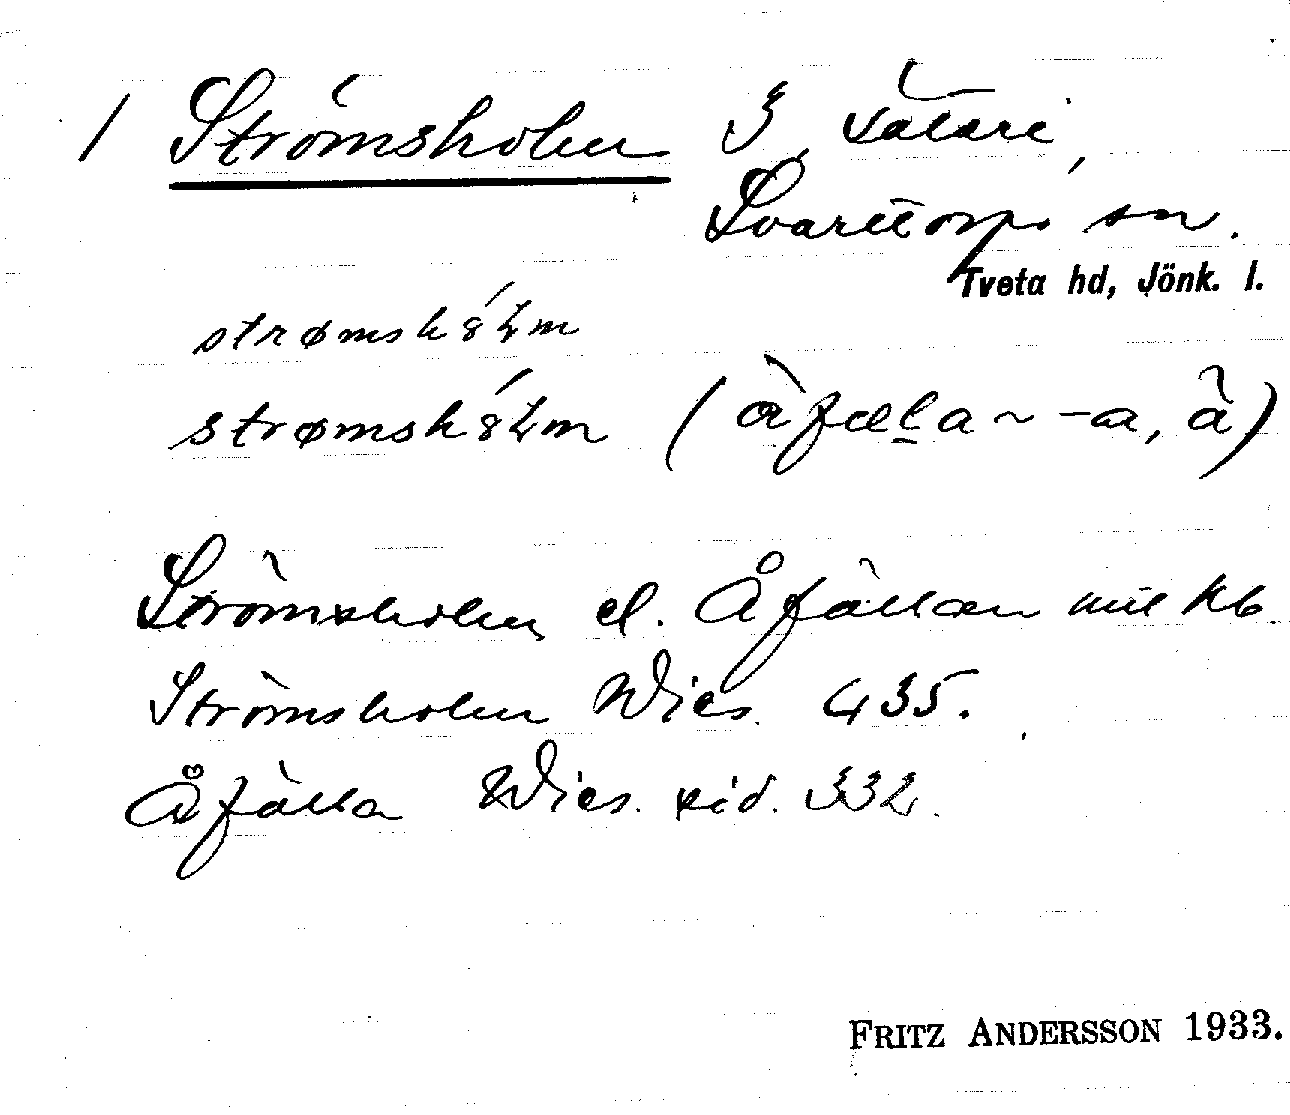 / Strömsholm 3, säteri,
Svarttorps sn.
Tveta hd, Jönk. l.
strømshólm
strømshólm (àfæla ~ -a, à)
Strömsholm el. Åfällan mil kb.
Strömsholm Wies. 435.
Åfälla Wies. sid. 332.
FRITZ ANDERSSON 1933.